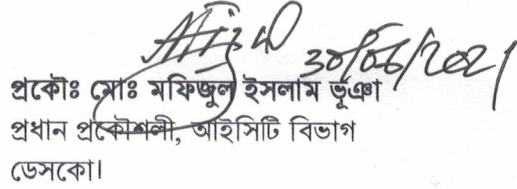 30/06/2021
প্রকৌঃ মোঃ মফিজুল ইসলাম ভূঞা
প্রধান প্রকৌশলী, আইসিটি বিভাগ
ডেসকো।